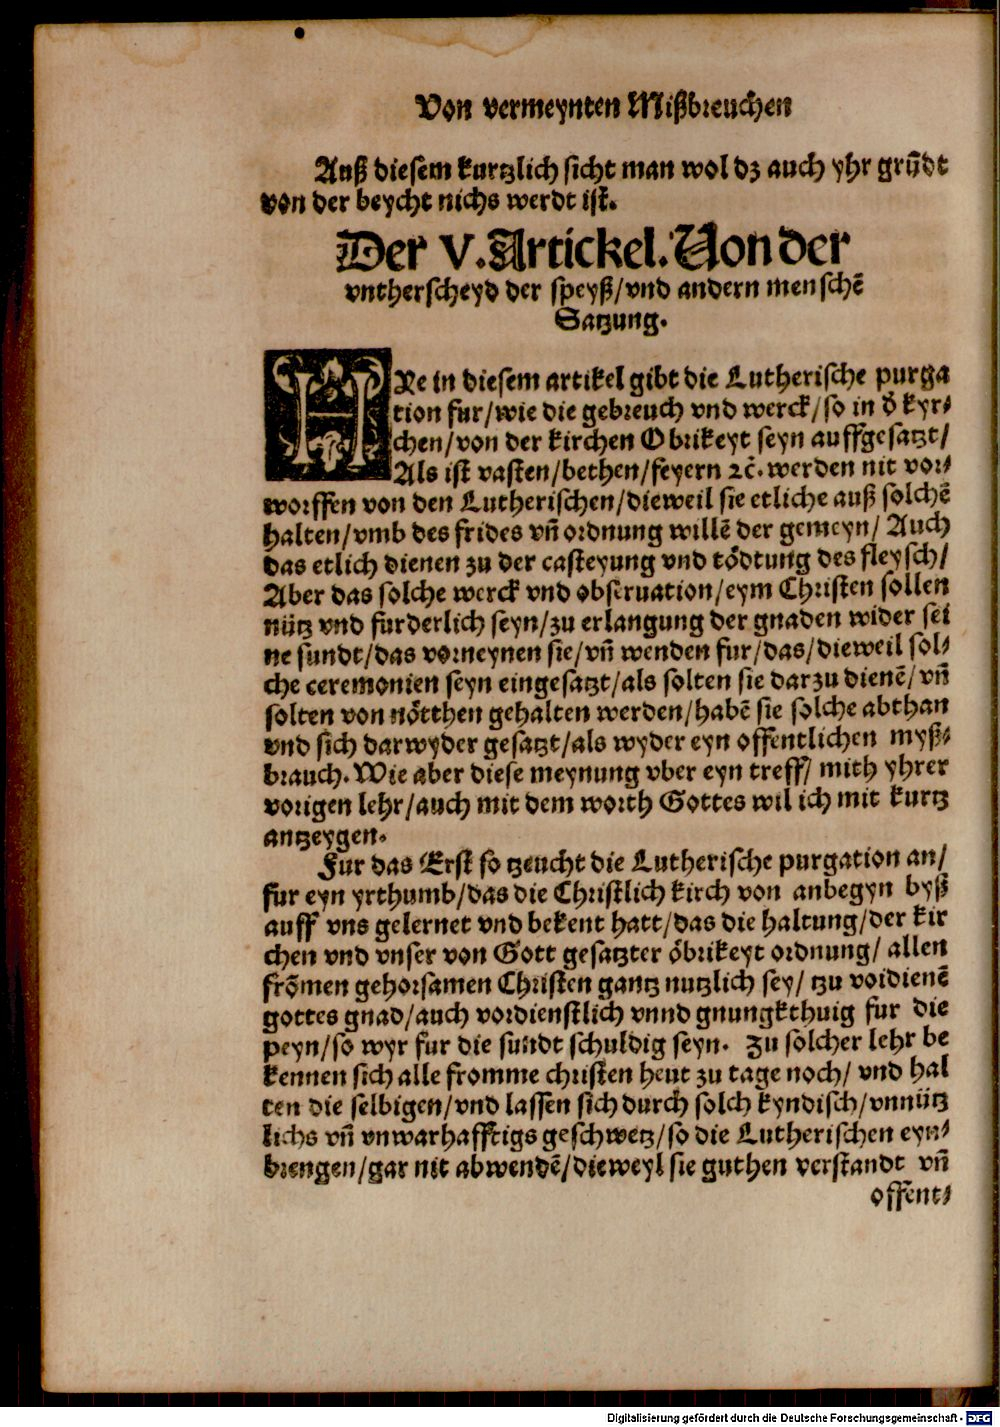 Von vermeynten Mißbreuchen
Auß diesem kurtzlich sicht man wol dz auch yhr grũdt
von der beycht nichs werdt ist.
Der V. Artickel. Von der
vntherscheyd der speyß/vnd andern menschẽ
Satzung.
HRe in diesem artikel gibt die Lutherische purga
tion fur/wie die gebreuch vnd werck/so in d̃ kyr⸗
chen/von der kirchen Obrikeyt seyn auffgesatzt/
Als ist vasten/bethen/feyern ꝛc̃. werden nit vor⸗
worffen von den Lutherischen/dieweil sie etliche auß solchẽ
halten/vmb des frides vñ ordnung willẽ der gemeyn/ Auch
das etlich dienen zu der casteyung vnd tödtung des fleysch/
Aber das solche werck vnd obseruation/eym Christen sollen
nütz vnd furderlich seyn/zu erlangung der gnaden wider sei
ne sundt/das vorneynen sie/vñ wenden fur/das/dieweil sol⸗
che ceremonien seyn eingesatzt/als solten sie darzu dienẽ/vñ
solten von nötthen gehalten werden/habẽ sie solche abthan
vnd sich darwyder gesatzt/als wyder eyn offentlichen myß⸗
brauch. Wie aber diese meynung vber eyn treff/ mith yhrer
vorigen lehr/auch mit dem worth Gottes wil ich mit kurtz
antzeygen.
Fur das Erst so tzeucht die Lutherische purgation an/
fur eyn yrthumb/das die Christlich kirch von anbegyn byß
auff vns gelernet vnd bekent hatt/das die haltung/der kir
chen vnd vnser von Gott gesatzter öbrikeyt ordnung/ allen
frõmen gehorsamen Christen gantz nutzlich sey/ tzu voidienẽ
gottes gnad/auch vordienstlich vnnd gnungkthuig fur die
peyn/so wyr fur die sundt schuldig seyn. Zu solcher lehr be
kennen sich alle fromme christen heut zu tage noch/ vnd hal
ten die selbigen/vnd lassen sich durch solch kyndisch/vnnütz
lichs vñ vnwarhafftigs geschwetz/so die Lutherischen eyn⸗
brengen/gar nit abwendẽ/dieweyl sie guthen verstandt vñ
offent⸗
Digitalisierung gefördert durch die Deutsche Forschungsgemeinschaft - DFG